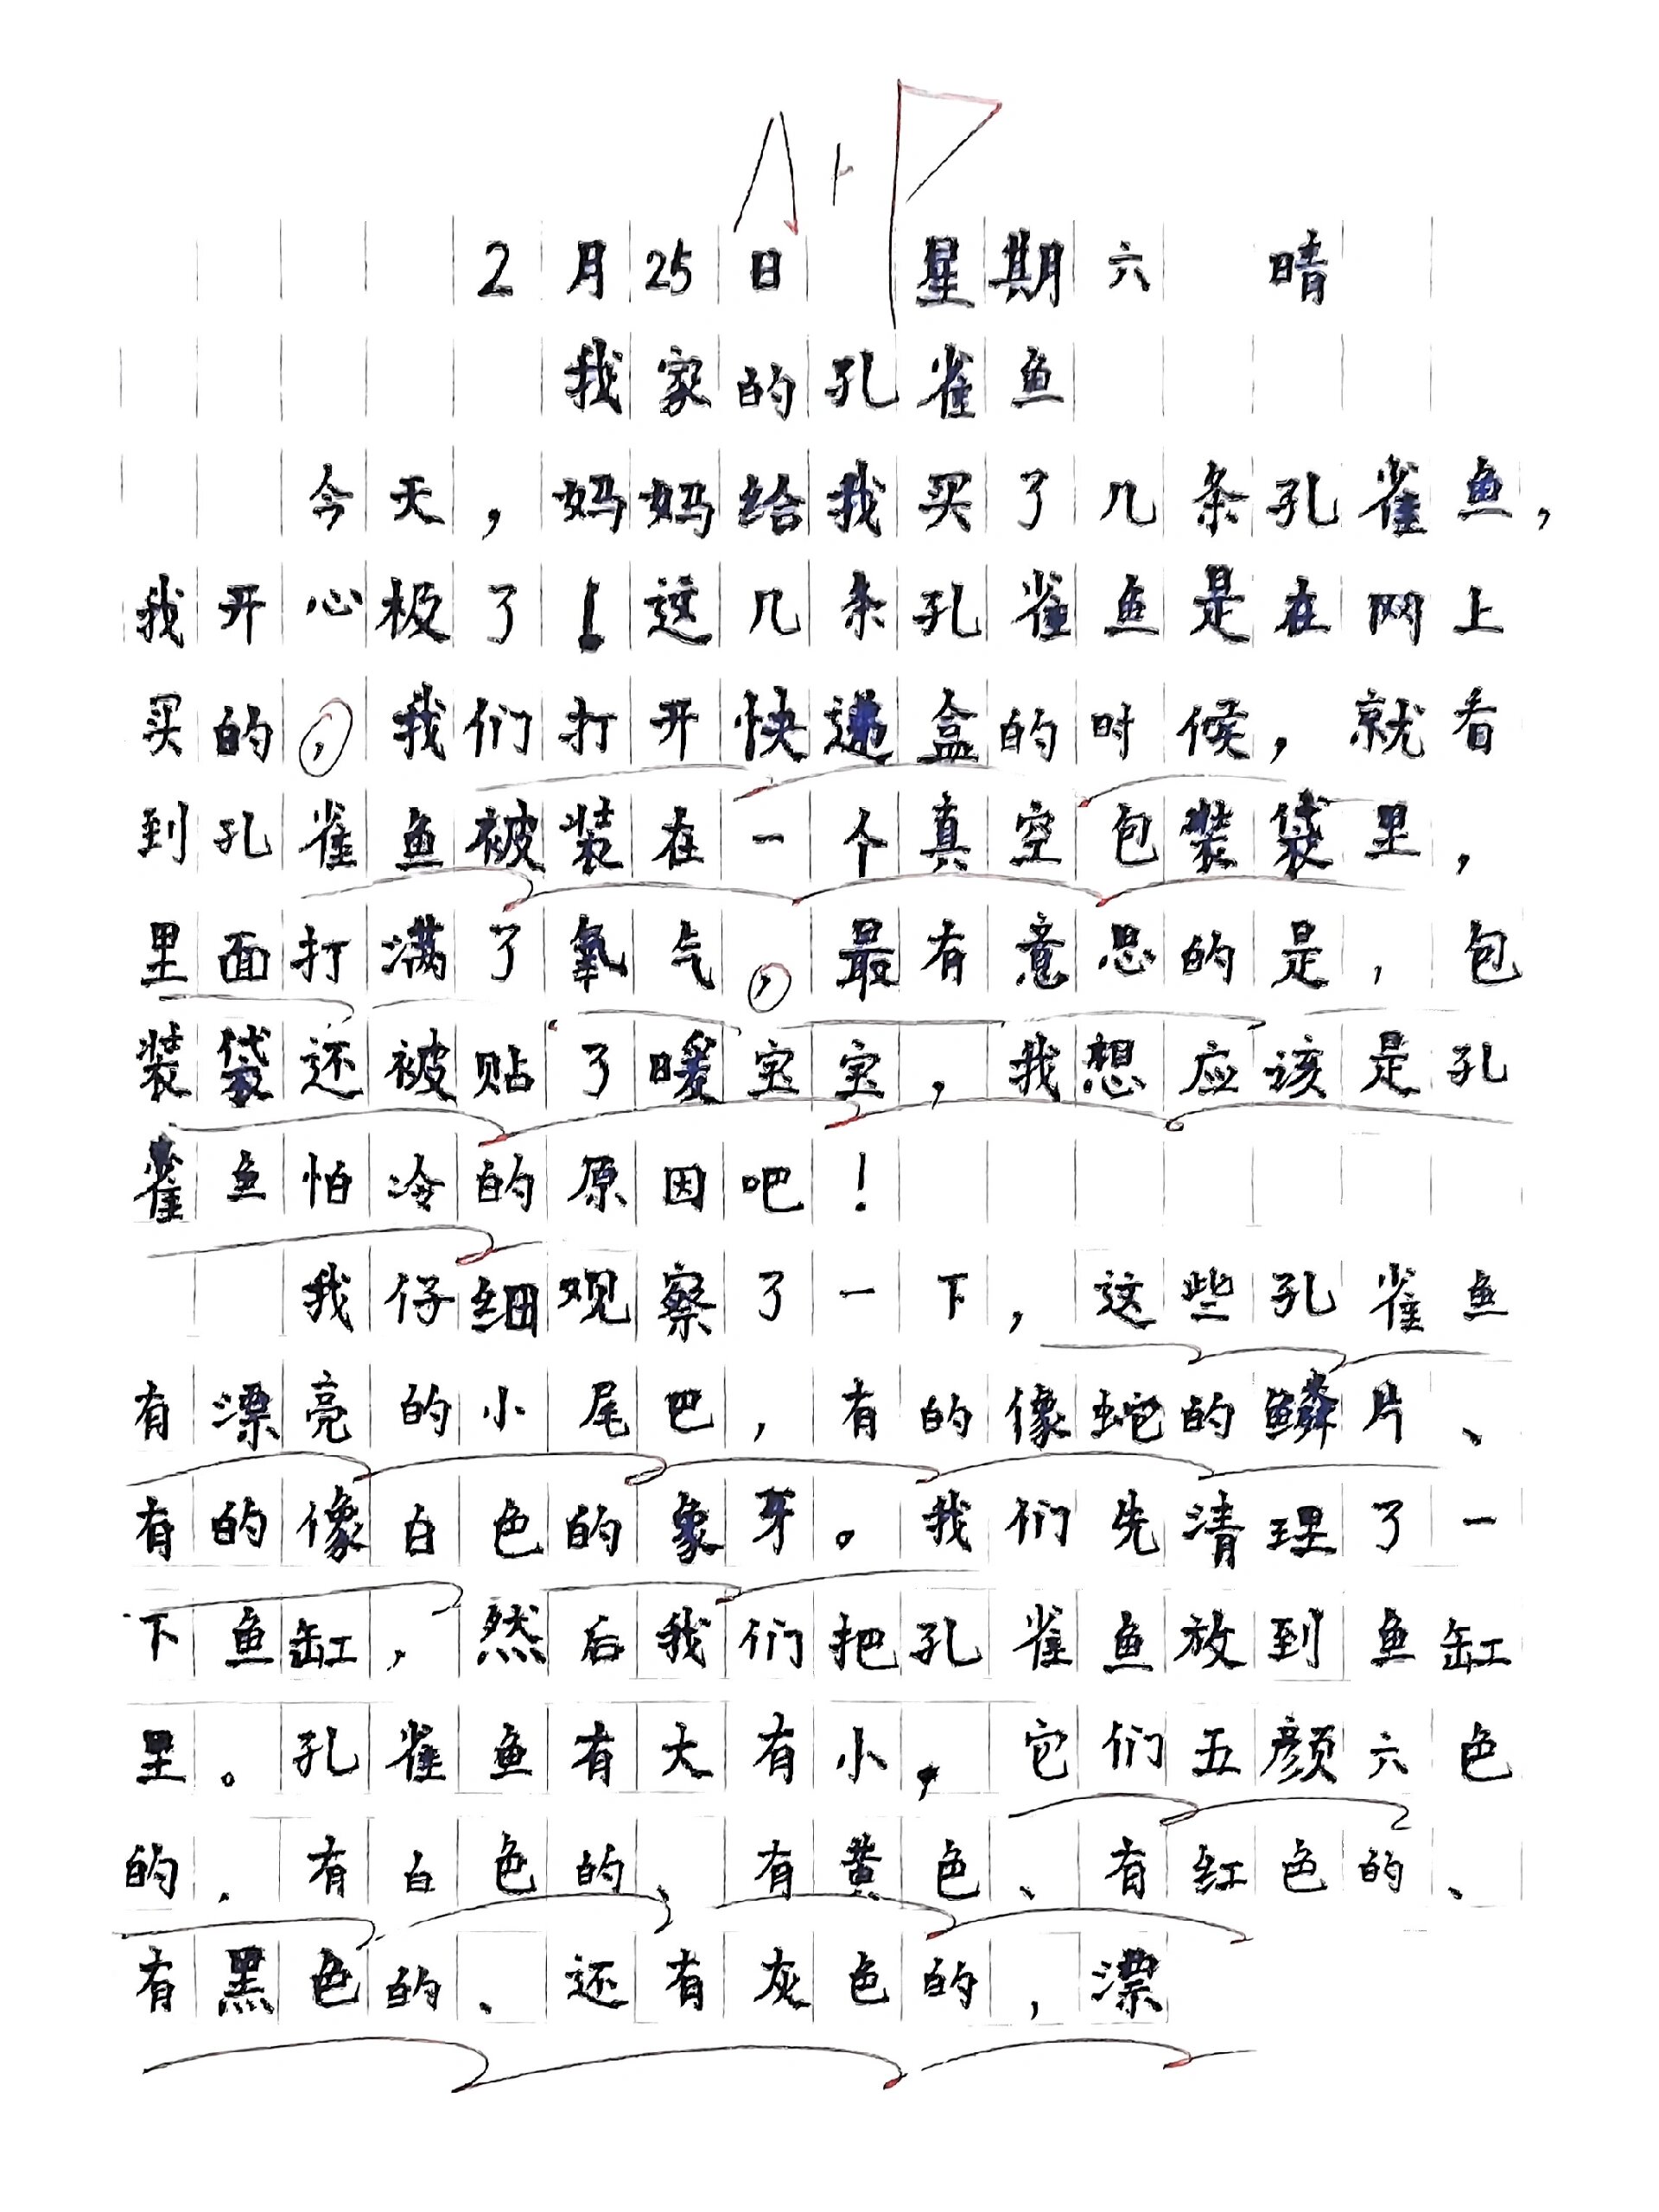 A+
2月25日 星期六 晴
我家的孔雀鱼
今天，妈妈给我买了几条孔雀鱼，
我开心极了！这几条孔雀鱼是在网上
买的，我们打开快递盒的时候，就看
到孔雀鱼被装在一个真空包装袋里，
里面打满了氧气，最有意思的是，包
装袋还被贴了暖宝宝，我想应该是孔
雀鱼怕冷的原因吧！
我仔细观察了一下，这些孔雀鱼
有漂亮的小尾巴，有的像蛇的鳞片、
有的像白色的象牙。我们先清理了一
下鱼缸，然后我们把孔雀鱼放到鱼缸
里。孔雀鱼有大有小，它们五颜六色
的．有白色的、有黄色、有红色的、
有黑色的、还有灰色的，漂